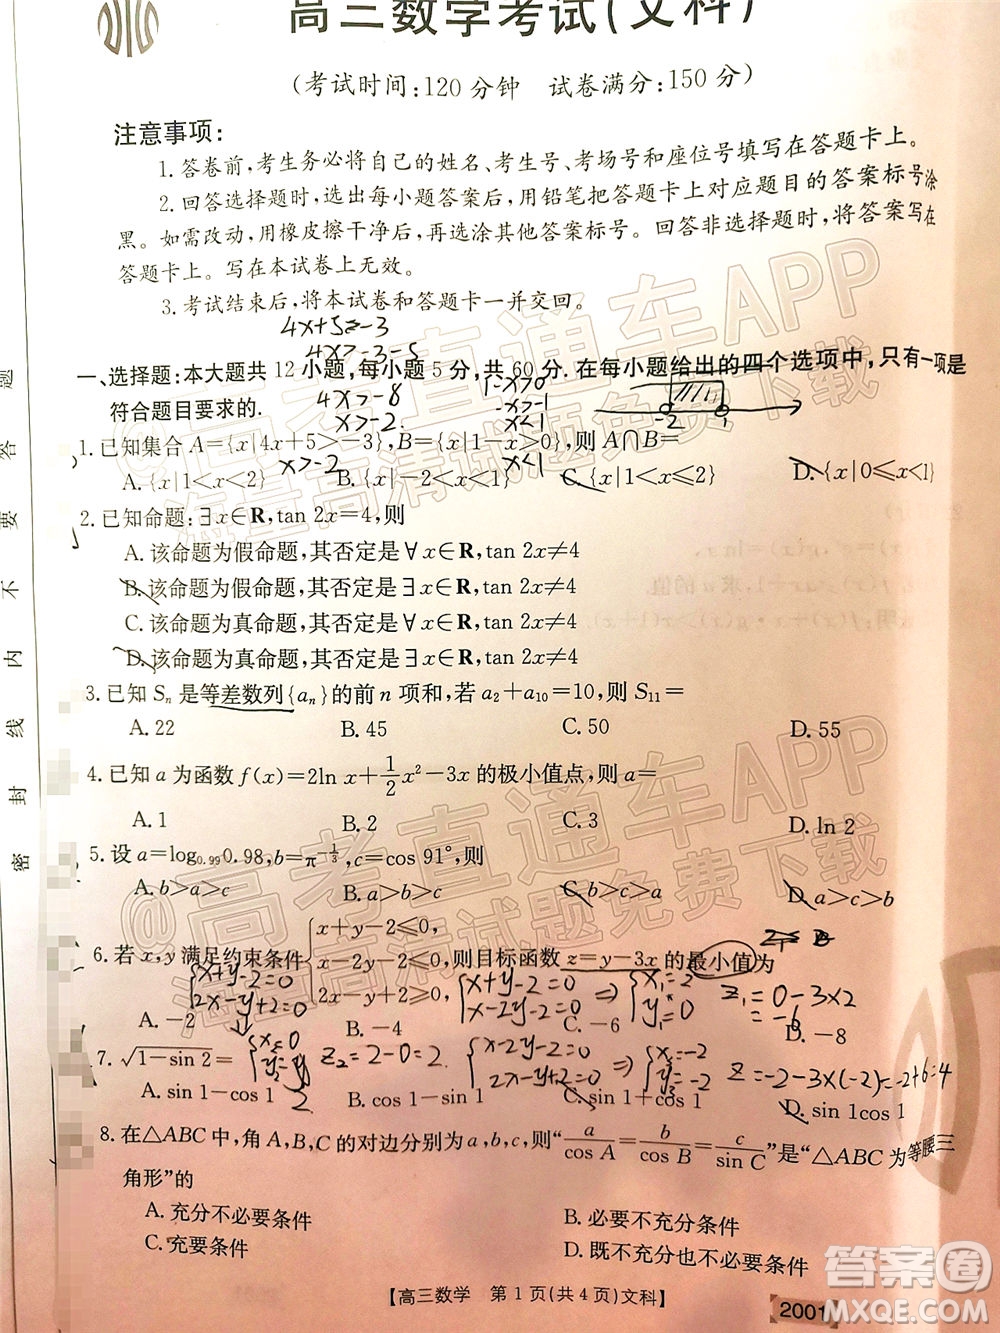 高三数学考试(文科)
(考试时间:120分钟 试卷满分:150分)
注意事项:
1.答卷前,考生务必将自己的姓名、考生号、考场号和座位号填写在答题卡上。
2.回答选择题时,选出每小题答案后,用铅笔把答题卡上对应题目的答案标号涂
黑。如需改动,用橡皮擦干净后,再选涂其他答案标号。回答非选择题时,将答案写在
答题卡上。写在本试卷上无效。
3.考试结束后,将本试卷和答题卡一并交回。
4x+5>-3
4x>-3-5
一、选择题:本大题共12小题,每小题5分,共60分.在每小题给出的四个选项中,只有一项是
符合题目要求的.
4x>-8
x>-2
1-x>0
-x>-1
x<1
-2 1
1.已知集合A={x|4x+5>-3},B={x|1-x>0},则A∩B=
x>-2
x<1
A.{x|1<x<2} B.{x|-2<x<1} C.{x|1<x<2} D.{x|0≤x<1}
2.已知命题:∃x∈R,tan 2x=4,则
A.该命题为假命题,其否定是∀x∈R,tan 2x≠4
B.该命题为假命题,其否定是∃x∈R,tan 2x≠4
C.该命题为真命题,其否定是∀x∈R,tan 2x≠4
D.该命题为真命题,其否定是∃x∈R,tan 2x≠4
3.已知Sn是等差数列{an}的前n项和,若a2+a10=10,则S11=
A.22 B.45 C.50 D.55
4.已知a为函数f(x)=2ln x+1/2x²-3x的极小值点,则a=
A.1 B.2 C.3 D.ln 2
5.设a=log0.99 0.98,b=π^(-1/3),c=cos 91°,则
A.b>a>c B.a>b>c C.b>c>a D.a>c>b
6.若x,y满足约束条件{x+y-2≤0, x-2y-2≤0, 2x-y+2≥0,则目标函数z=y-3x的最小值为
{x+y-2=0 2x-y+2=0
{x+y-2=0 x-2y-2=0 ⇒ {x1=2 y1=0
z1=0-3×2
=-6
A.-2 B.-4 C.-6 D.-8
{x2=0 y2=2
z2=2-0=2
{x-2y-2=0 2x-y+2=0 ⇒ {x=-2 y=-2
z=-2-3×(-2)=-2+6=4
7.√(1-sin 2)=
A.sin 1-cos 1 B.cos 1-sin 1 C.sin 1+cos 1 D.sin 1cos 1
8.在△ABC中,角A,B,C的对边分别为a,b,c,则“a/cos A=b/cos B=c/sin C”是“△ABC为等腰三
角形”的
A.充分不必要条件 B.必要不充分条件
C.充要条件 D.既不充分也不必要条件
【高三数学 第1页(共4页)文科】
2001
密 封 线 内 不 要 答 题
@高考直通车APP
海量高清试题免费下载
@高考直通车APP
海量高清试题免费下载
答案圈
MXQE.COM